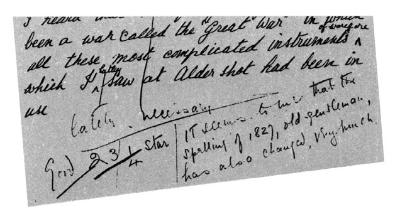 been a war called the "Great War" in which
all these most complicated instruments of warfare
which I later saw at Aldershot had been in
use
lately necessary
Good 2 3/4 star
It seems to me that the
spelling of 1827, old gentleman,
has also changed, very much.